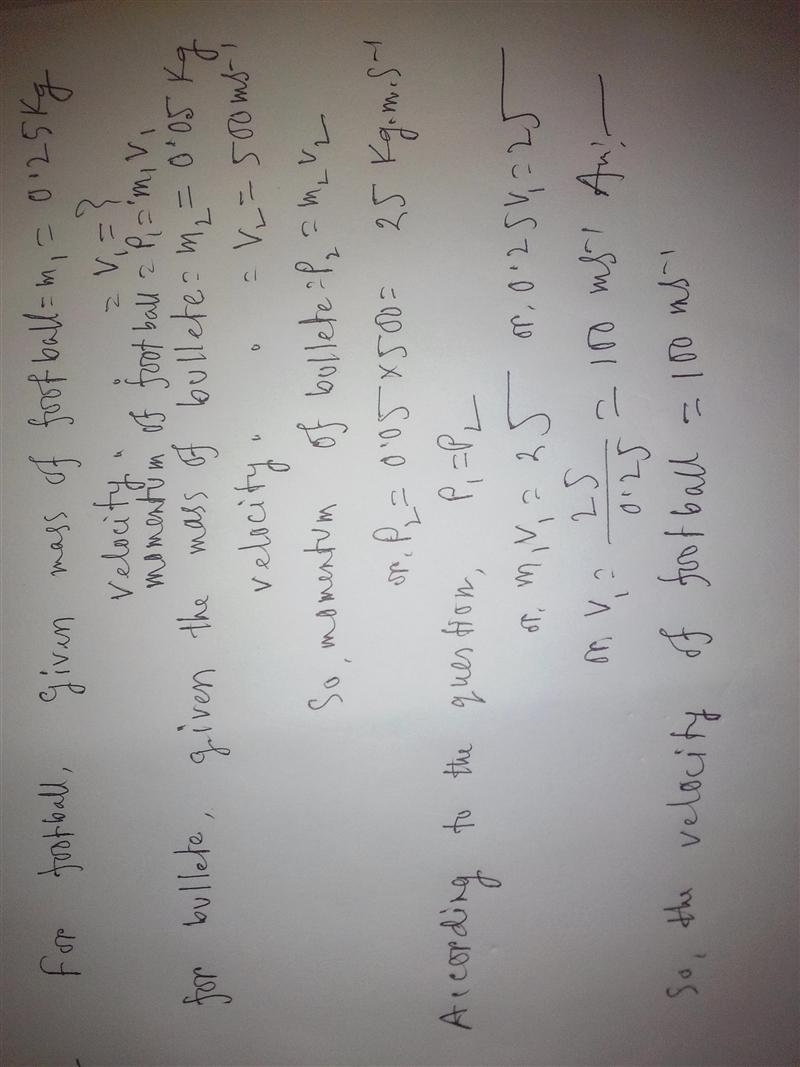 For football, given mass of football = m₁ = 0.25 Kg
velocity " = v₁ = ?
momentum of football = P₁ = m₁v₁
for bullete, given the mass of bullete = m₂ = 0.05 Kg
velocity " " = v₂ = 500 ms⁻¹
So, momentum of bullete = P₂ = m₂v₂
or, P₂ = 0.05 × 500 = 25 Kg.m.s⁻¹
According to the question, P₁ = P₂
or, m₁v₁ = 25 or, 0.25v₁ = 25
or, v₁ = 25/0.25 = 100 ms⁻¹ Ans:—
So, the velocity of football = 100 ms⁻¹